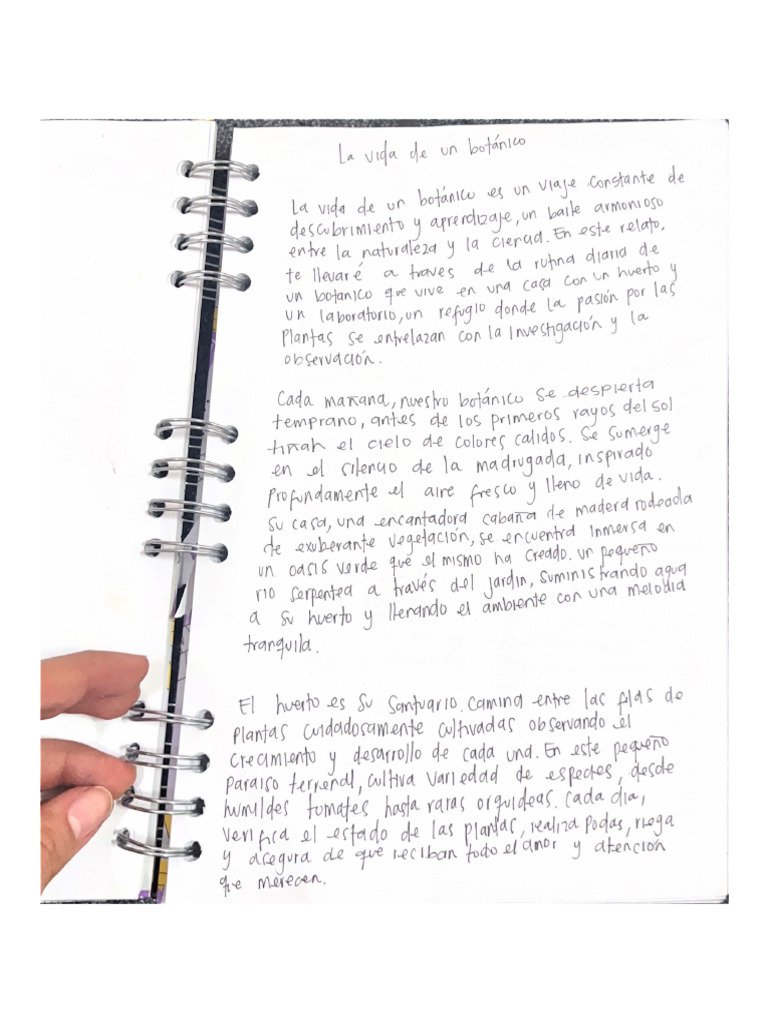 La vida de un botánico
La vida de un botánico es un viaje constante de
descubrimiento y aprendizaje, un baile armonioso
entre la naturaleza y la ciencia. En este relato,
te llevaré a traves de la rutina diaria de
un botanico que vive en una casa con un huerto y
un laboratorio, un refugio donde la pasión por las
plantas se entrelazan con la investigación y la
observación.
Cada mañana, nuestro botánico se despierta
temprano, antes de los primeros rayos del sol
tiñan el cielo de colores calidos. Se sumerge
en el silencio de la madrugada, inspirado
profundamente el aire fresco y lleno de vida.
Su casa, una encantadora cabaña de madera rodeada
de exuberante vegetación, se encuentra inmersa en
un oasis verde que el mismo ha creado. un pequeño
rio serpentea a través del jardin, suministrando agua
a su huerto y llenando el ambiente con una melodia
tranquila.
El huerto es su santuario. camina entre las filas de
plantas cuidadosamente cultivadas observando el
crecimiento y desarrollo de cada una. En este pequeño
paraiso terrenal, cultiva variedad de especies, desde
humildes tomates hasta raras orquideas. cada dia,
verifica el estado de las plantas, realiza podas, riega
y asegura de que reciban todo el amor y atención
que merecen.